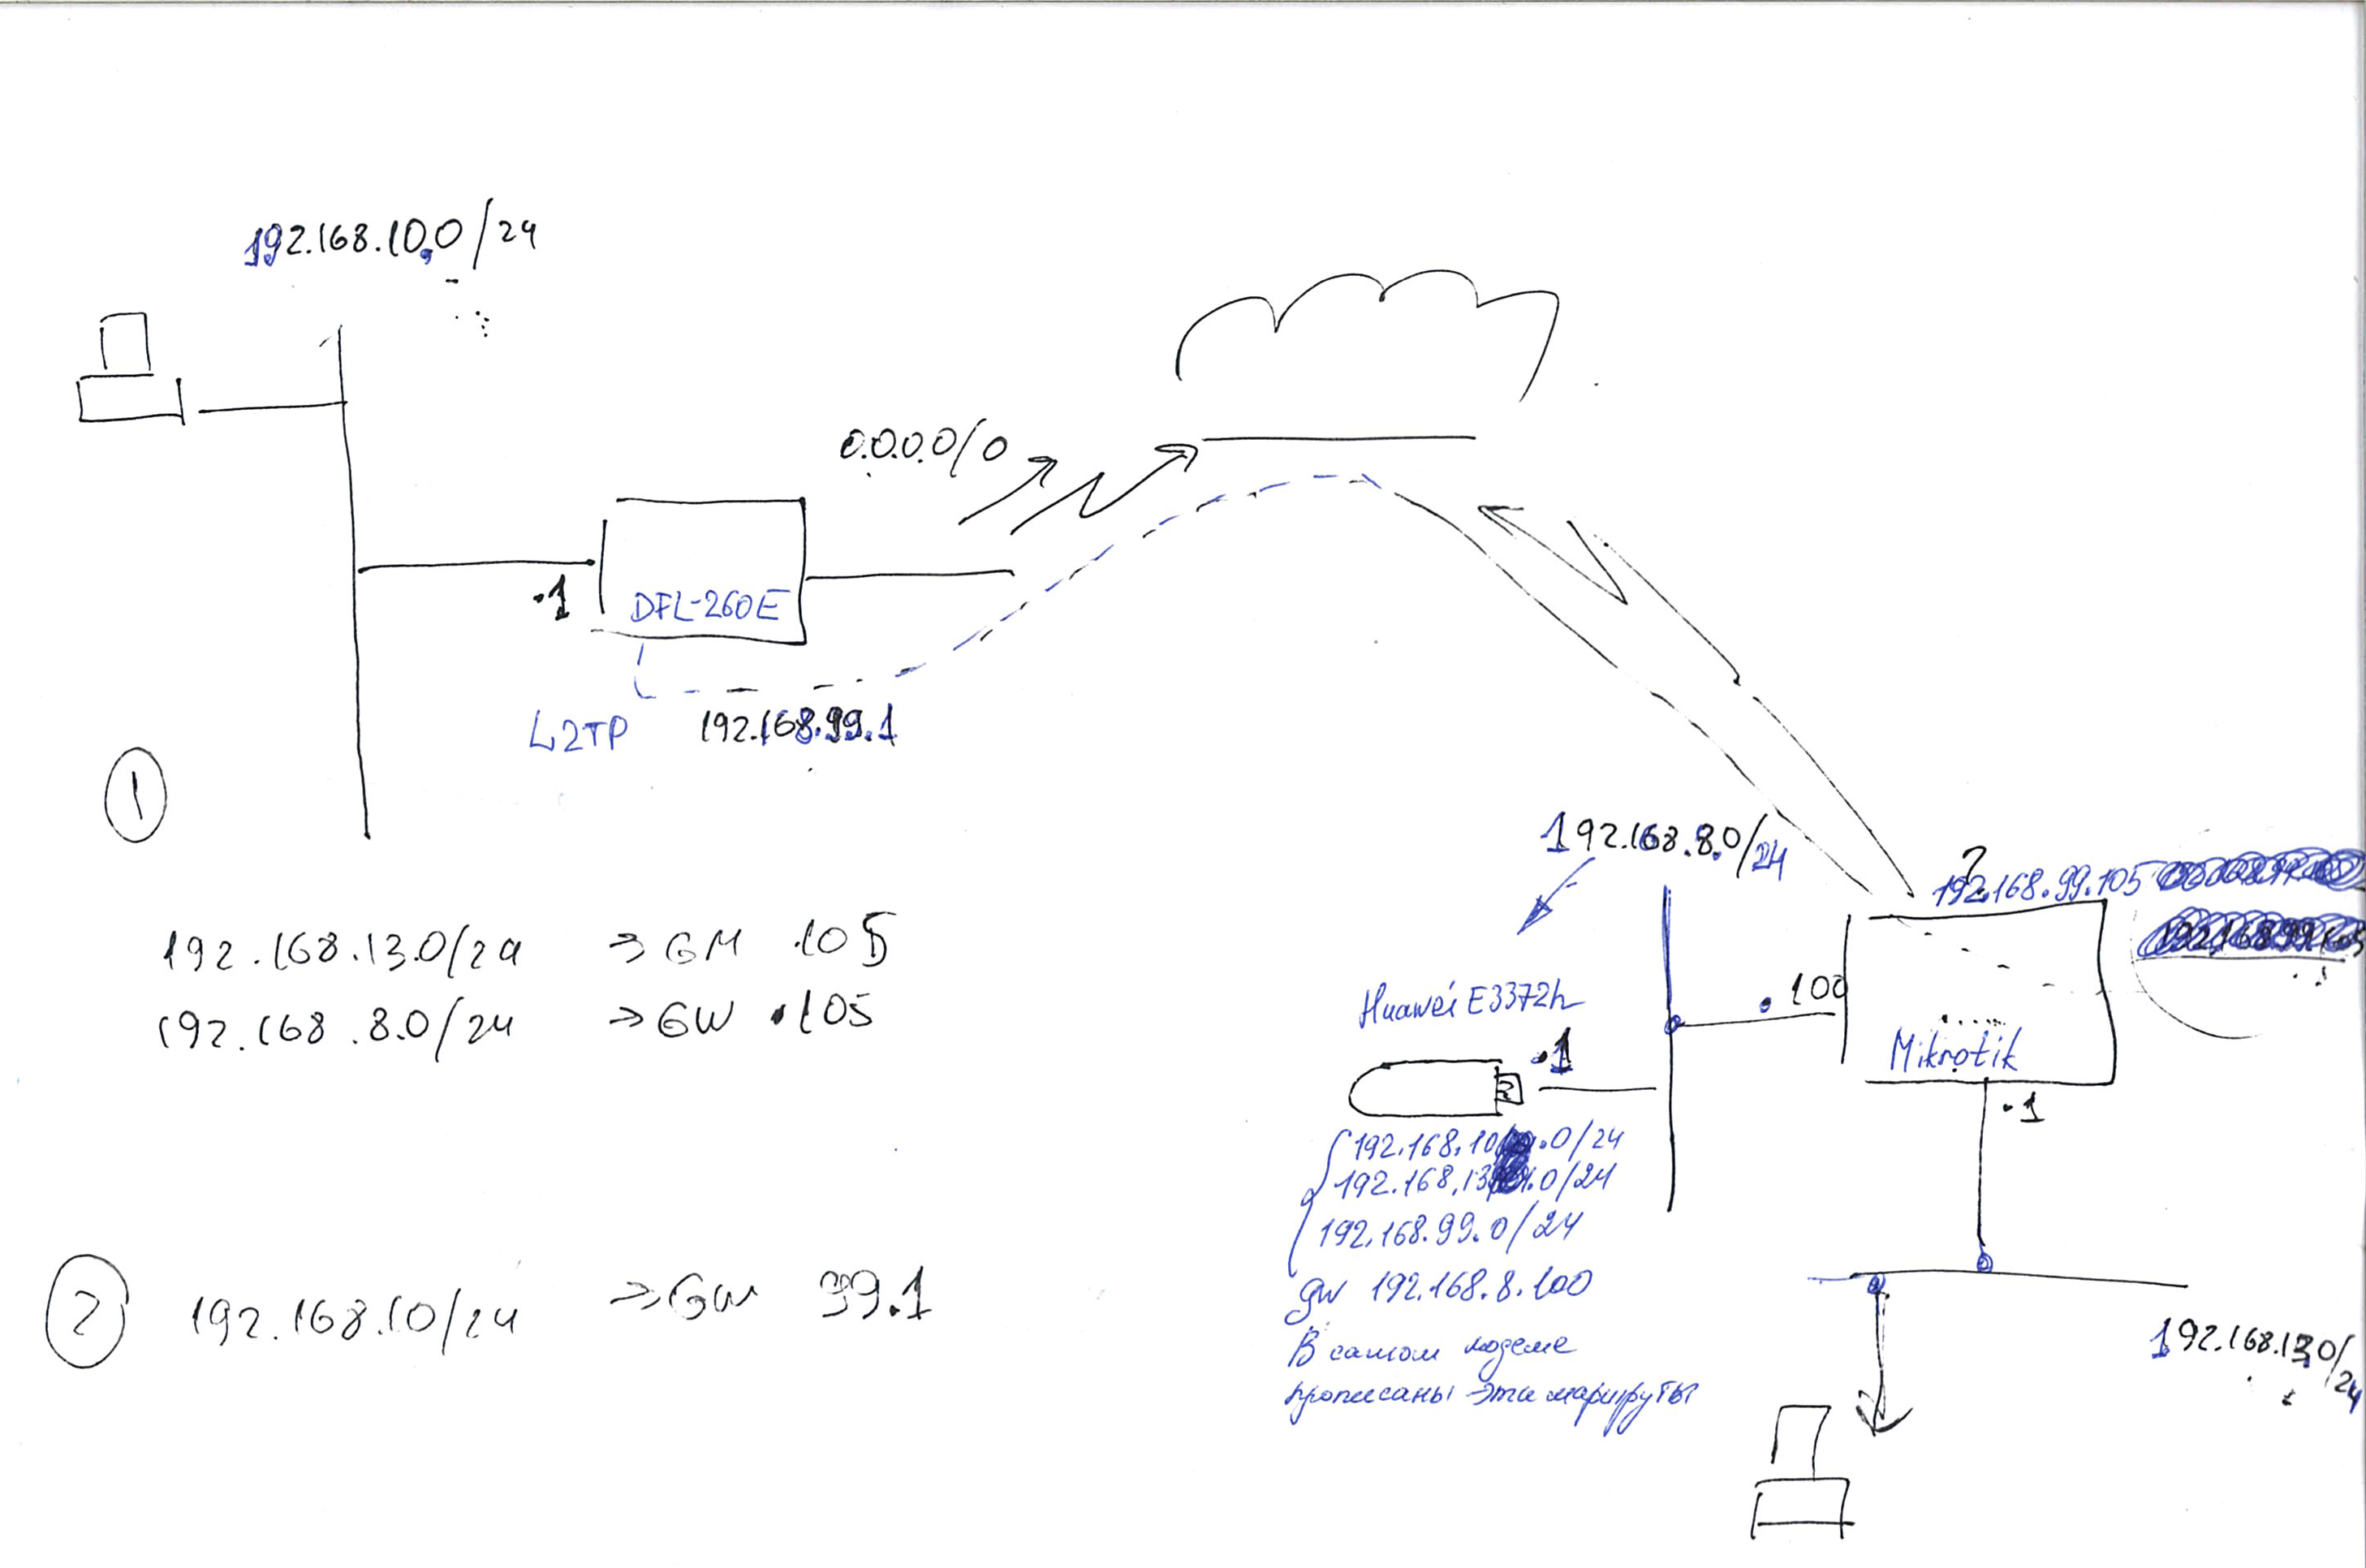 192.168.10.0/24
0.0.0.0/0
.1
DFL-260E
L2TP 192.168.99.1
1
192.168.13.0/24 => GM .105
192.168.8.0/24 => GW .105
2
192.168.10/24 => GW 99.1
192.168.8.0/24
?
192.168.99.105
.100
Mikrotik
.1
Huawei E3372h
.1
192.168.10.0/24
192.168.13.0/24
192.168.99.0/24
gw 192.168.8.100
В самом модеме
прописаны эти маршруты
192.168.13.0/24